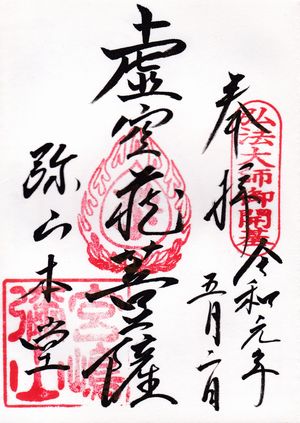 奉拝
弘法大師御開基
令和元年
五月二日
虚空蔵菩薩
弥山本堂
宮嶋
彌山